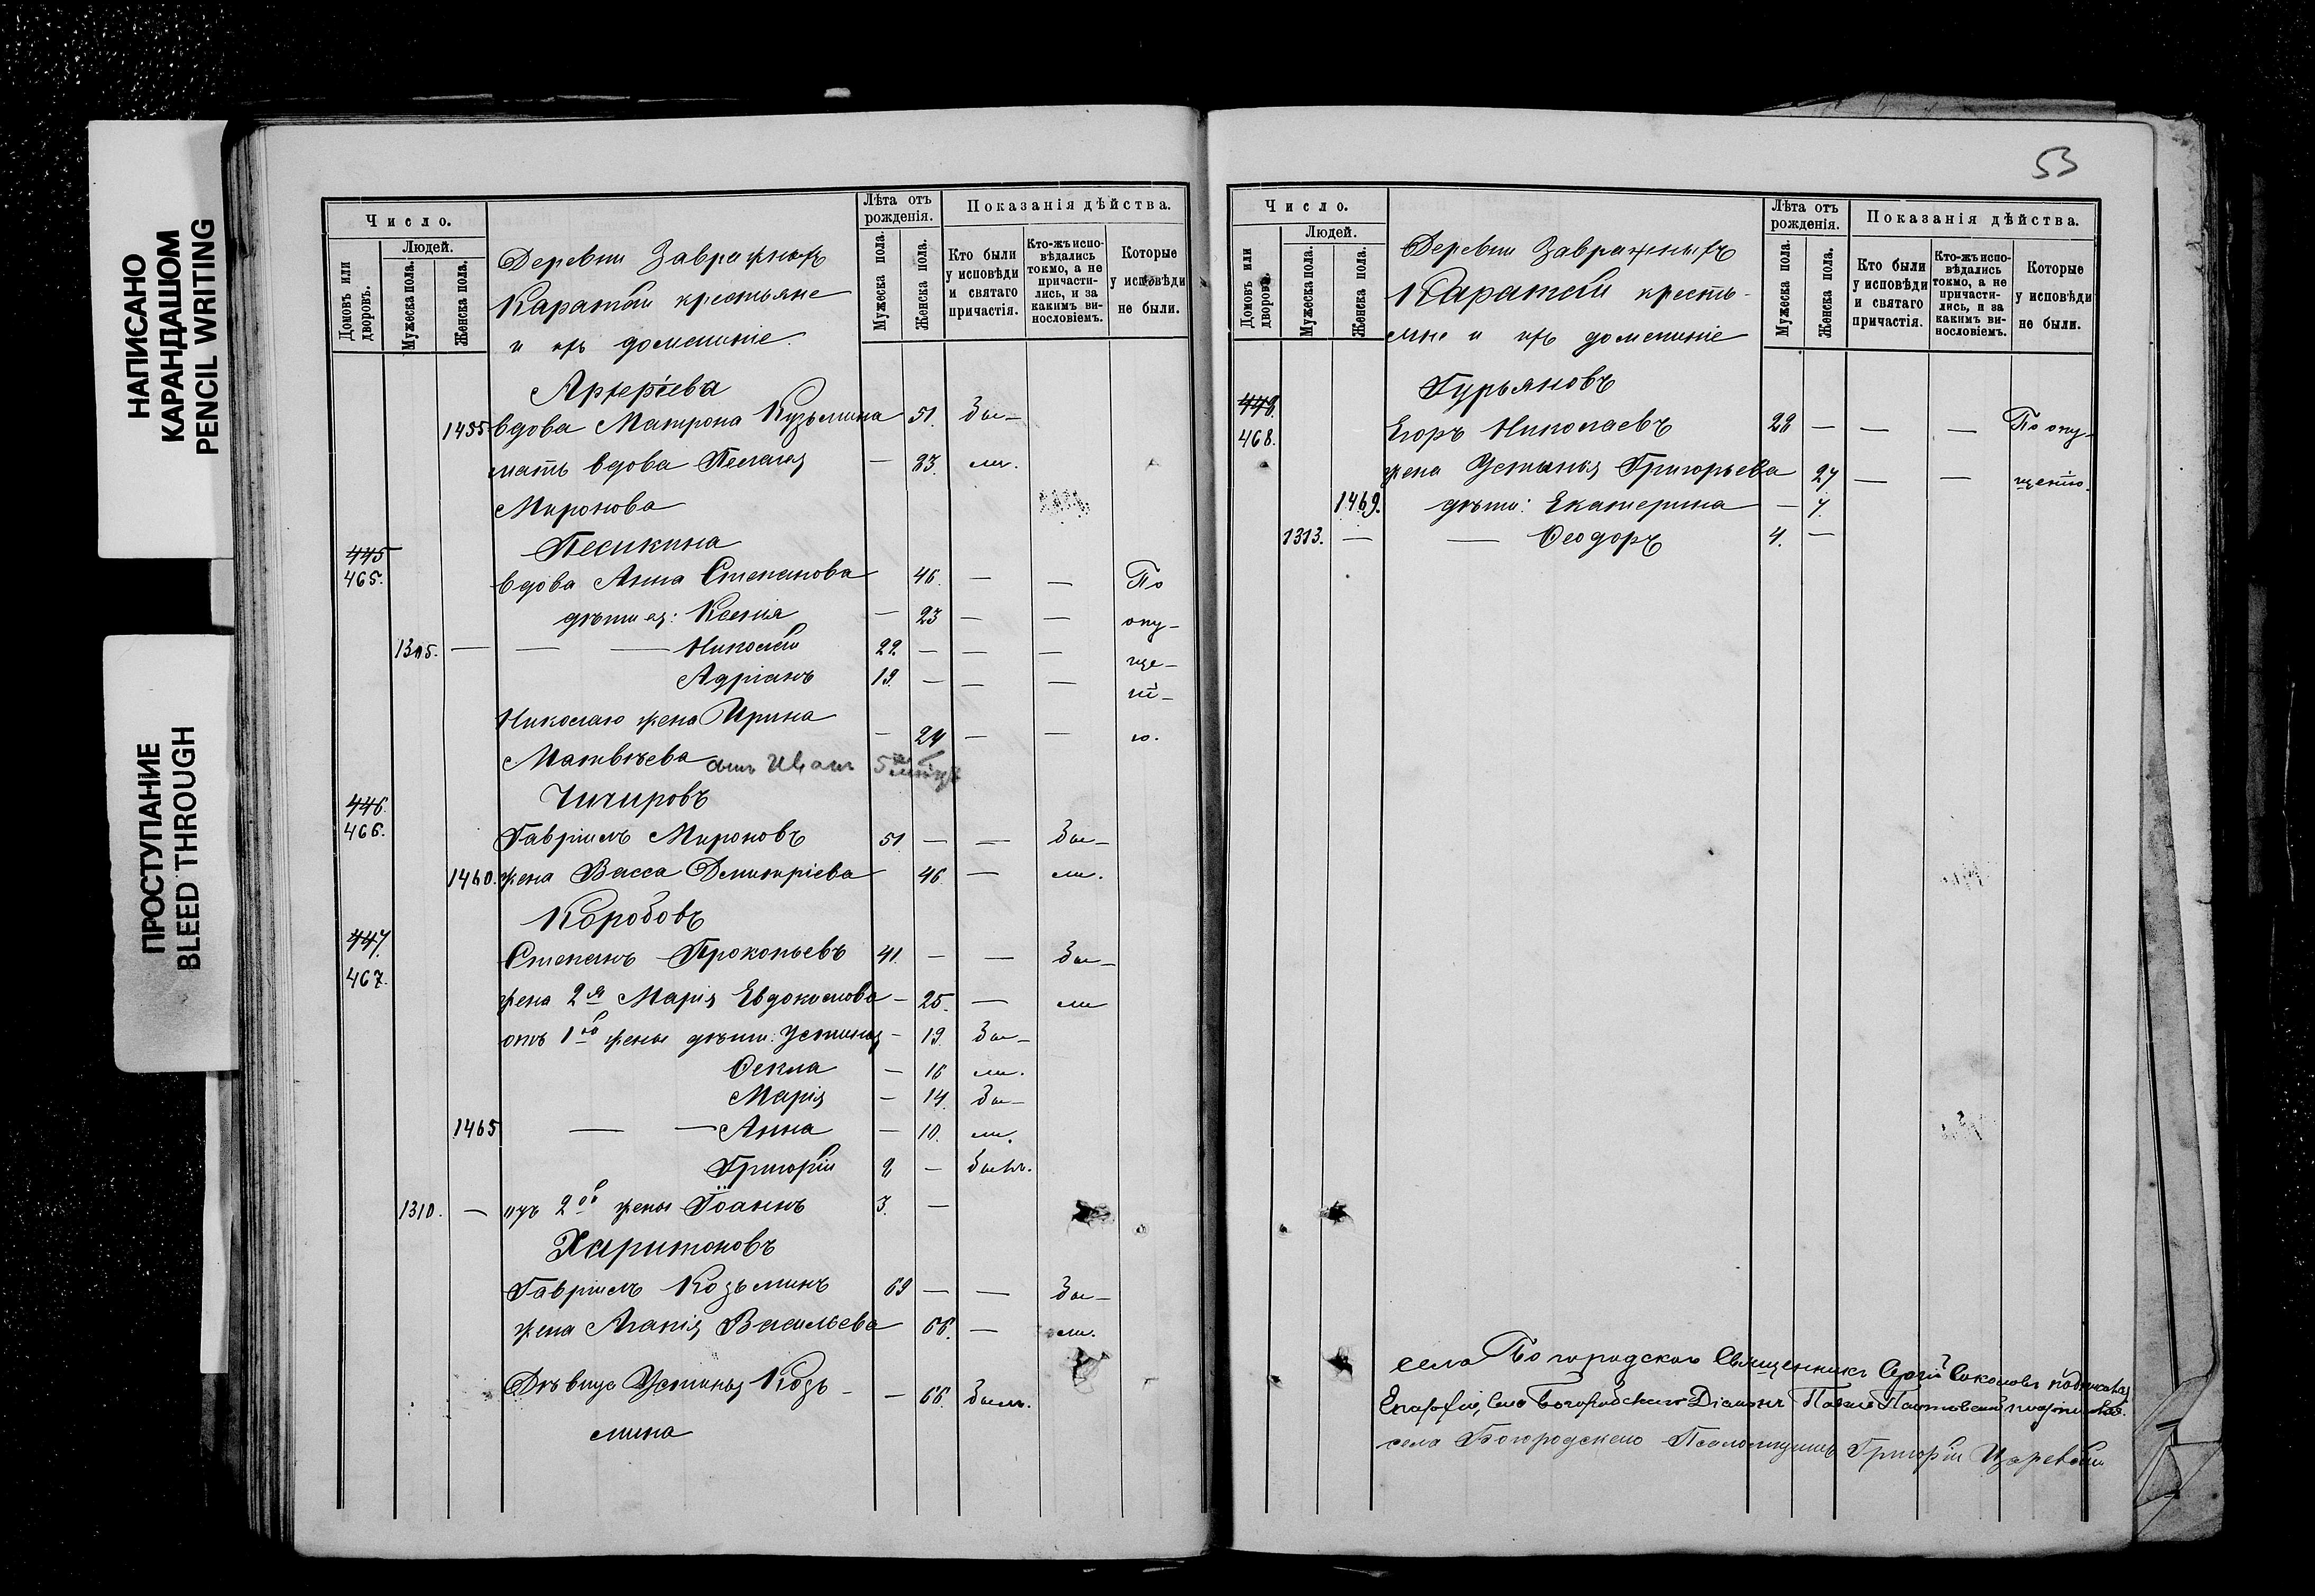 НАПИСАНО
КАРАНДАШОМ
PENCIL WRITING
ПРОСТУПАНИЕ
BLEED THROUGH
Число.
Домовъ или дворовъ.
Людей.
Мужеска пола.
Женска пола.
Деревни Завражныхъ
Каратай крестьяне
и ихъ домашніе.
Лѣта отъ рожденія.
Мужеска пола.
Женска пола.
Показанія дѣйства.
Кто были у исповѣди и святаго причастія.
Кто-жъ исповѣдались токмо, а не причастились, и за какимъ винословіемъ.
Которые у исповѣди не были.
1455 вдова Матрона Кузьмина 51. Бы-
мать вдова Пелагея — 83. ли.
Миронова
445
465. вдова Анна Степанова 46. — — По
дѣти ея: Ксенія — 23 — — опу-
1305. — — — Николай 22 — — — ще-
Адріанъ 19. — — — ні-
Николаю жена Ирина
Матвѣева — 24 — — ю.
Иванъ 5
Чичировъ
446.
466. Гавріилъ Мироновъ 51 — — Бы-
1460. жена Васса Димитріева 46. — ли.
Коробовъ
447.
467. Степанъ Прокопьевъ 41. — — Бы-
жена 2я Марія Евдокимова — 25. — ли
отъ 1ой жены дѣти: Устинья — 19. Бы-
Ѳекла — 16 ли.
Марія — 14. Бы-
1465 — — Анна — 10. ли.
Григорій 8 — Былъ.
1310. — отъ 2ой жены Іоаннъ 3. —
Харитоновъ
Гавріилъ Козьминъ 69 — — Бы-
жена Агапія Васильева 66. — ли.
Дѣвица Устинья Козь-
мина — 66. Была.
53
Число.
Домовъ или дворовъ.
Людей.
Мужеска пола.
Женска пола.
Деревни Завражныхъ
Каратай кресть-
яне и ихъ домашніе
Лѣта отъ рожденія.
Мужеска пола.
Женска пола.
Показанія дѣйства.
Кто были у исповѣди и святаго причастія.
Кто-жъ исповѣдались токмо, а не причастились, и за какимъ винословіемъ.
Которые у исповѣди не были.
Гурьяновъ
448.
468. Егоръ Николаевъ 28 — — — По опу-
жена Устинья Григорьева 27 — — щенію.
1469. дѣти: Екатерина — 7.
1313. — — Ѳеодоръ 4. —
села Богородскаго Священникъ Сергій Соколовъ
села Богородскаго Діаконъ Павелъ
села Богородскаго Псаломщикъ Григорій Царевскій